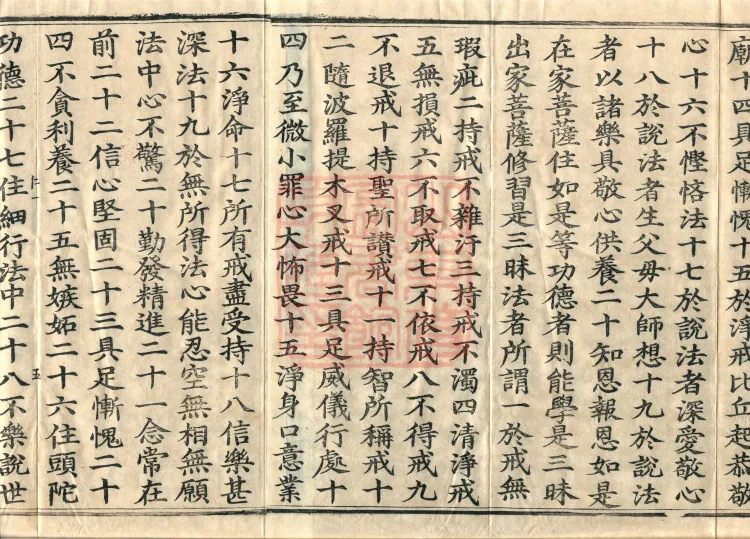 廟十四具足慚愧十五於淨戒比丘起恭敬
心十六不慳悋法十七於說法者深愛敬心
十八於說法者生父母大師想十九於說法
者以諸樂具敬心供養二十知恩報恩如是
在家菩薩住如是等功德者則能學是三昧
出家菩薩修習是三昧法者所謂一於戒無
瑕疵二持戒不雜汙三持戒不濁四清淨戒
五無損戒六不取戒七不依戒八不得戒九
不退戒十持聖所讃戒十一持智所稱戒十
二隨波羅提木叉戒十三具足威儀行處十
四乃至微小罪心大怖畏十五淨身口意業
十六淨命十七所有戒盡受持十八信樂甚
深法十九於無所得法心能忍空無相無願
法中心不驚二十勤發精進二十一念常在
前二十二信心堅固二十三具足慚愧二十
四不貪利養二十五無嫉妬二十六住頭陀
功德二十七住細行法中二十八不樂說世